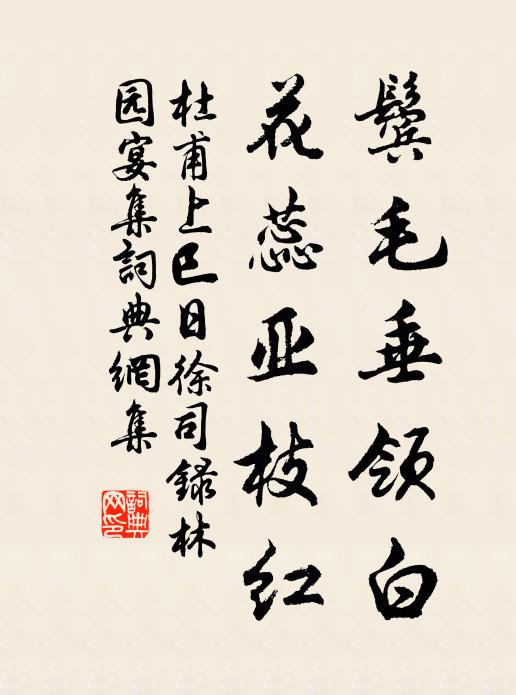 鬓毛垂领白
花蕊亚枝红
杜甫上巳日徐司録林
园宴集詞典網集
詞典网印